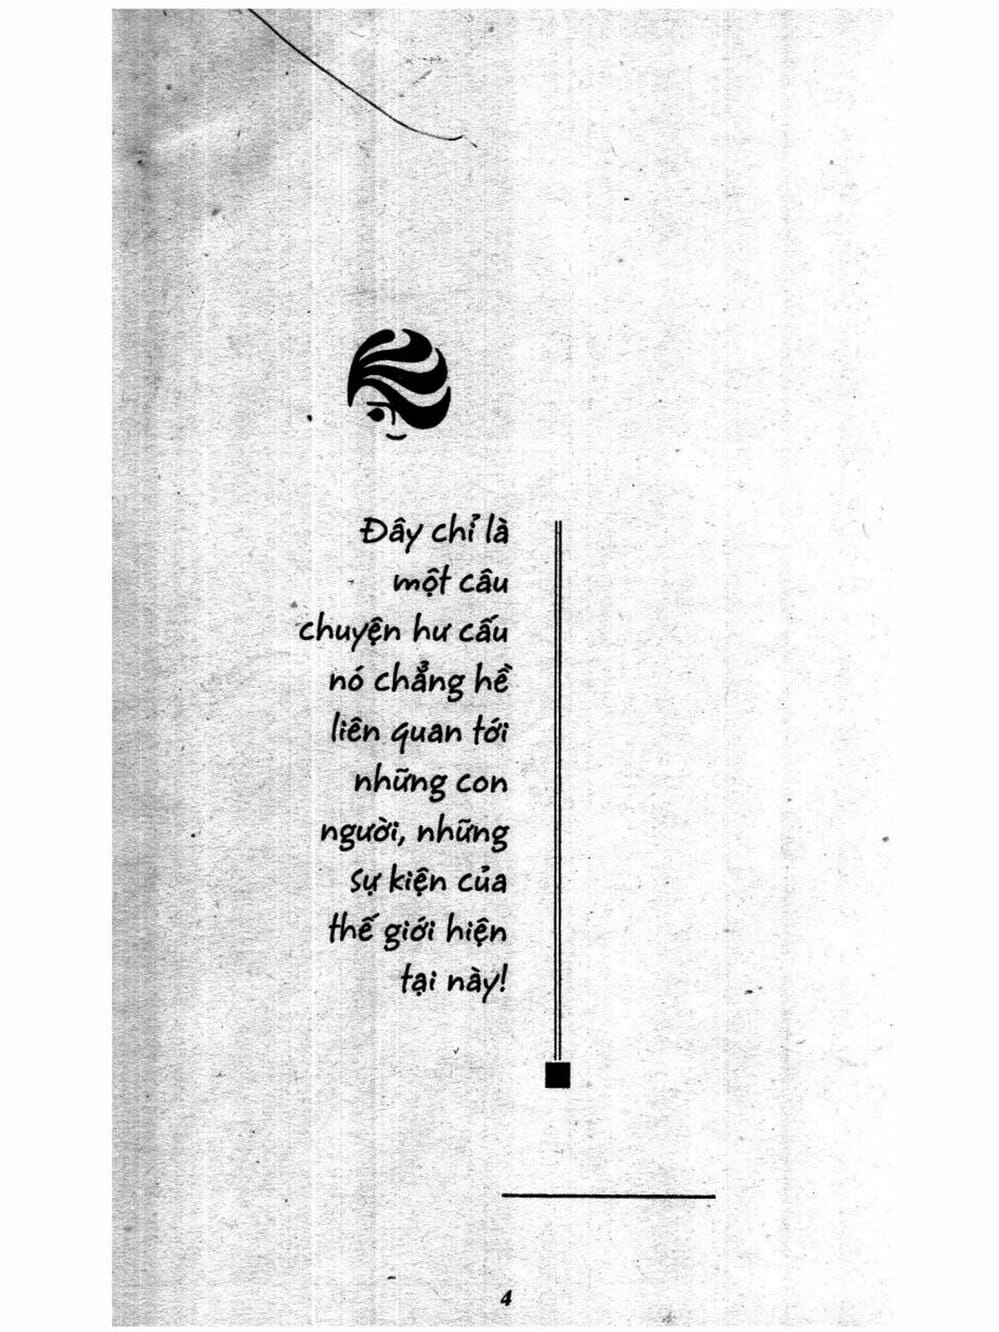 Đây chỉ là
một câu
chuyện hư cấu
nó chẳng hề
liên quan tới
những con
người, những
sự kiện của
thế giới hiện
tại này!
4